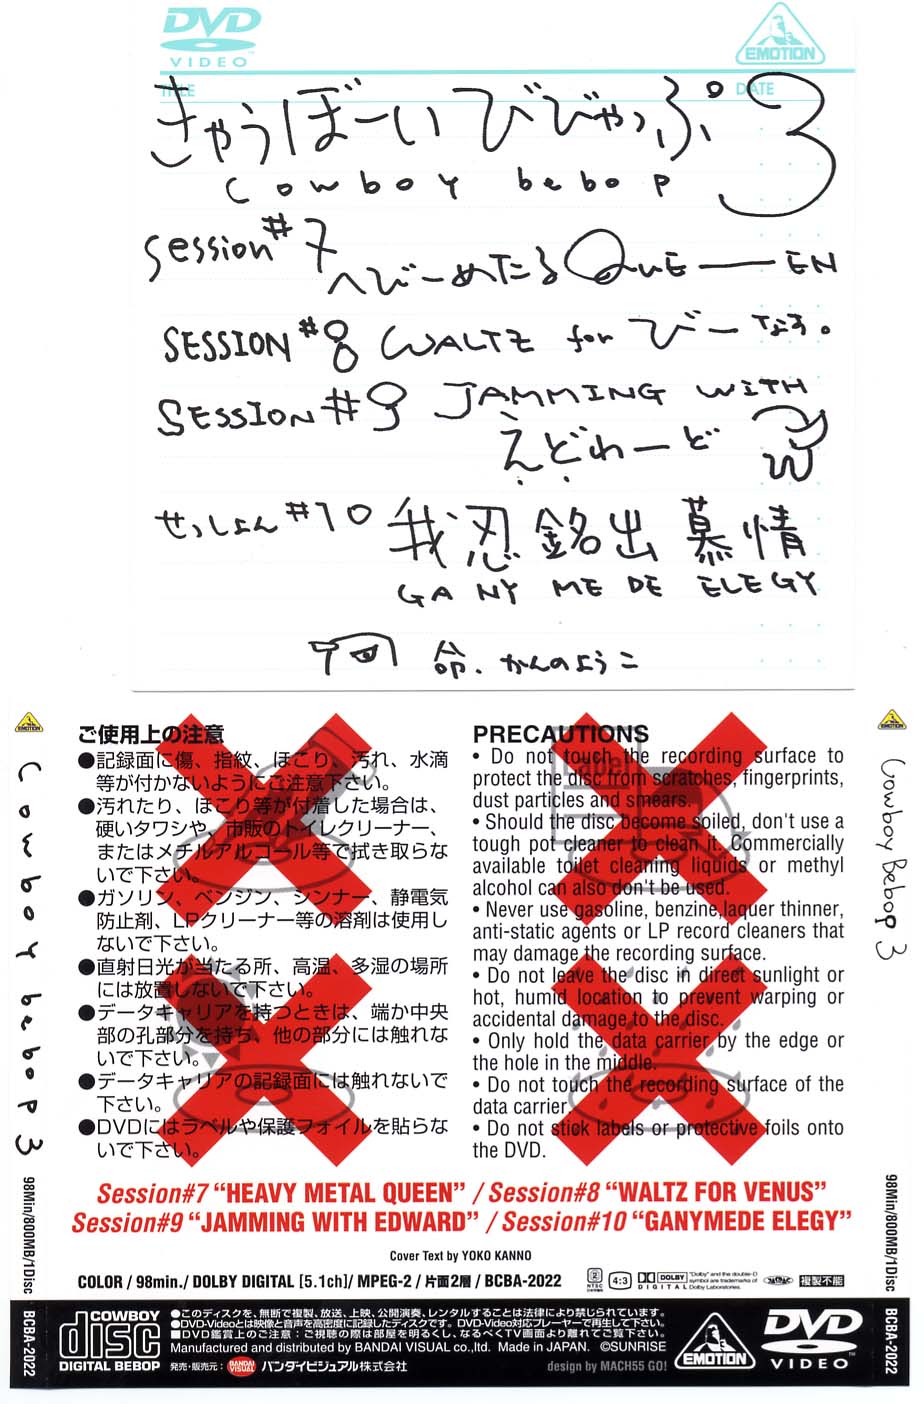 DVD
VIDEO
EMOTION
TITLE
DATE
きゃうぼーい びびゃっぷ 3
cowboy bebop
session #7
へびーめたる QUE——EN
SESSION #8 WALTZ for びーなす。
SESSION #9 JAMMING WITH
えどわーど
せっしょん #10 我忍銘出 慕情
GA NY ME DE ELEGY
命. かんのようこ
EMOTION
cowboy bebop 3
98Min/800MB/1Disc
BCBA-2022
ご使用上の注意
●記録面に傷、指紋、ほこり、汚れ、水滴
等が付かないようにご注意下さい。
●汚れたり、ほこり等が付着した場合は、
硬いタワシや、市販のトイレクリーナー、
またはメチルアルコール等で拭き取らな
いで下さい。
●ガソリン、ベンジン、シンナー、静電気
防止剤、LPクリーナー等の溶剤は使用し
ないで下さい。
●直射日光が当たる所、高温、多湿の場所
には放置しないで下さい。
●データキャリアを持つときは、端か中央
部の孔部分を持ち、他の部分には触れな
いで下さい。
●データキャリアの記録面には触れないで
下さい。
●DVDにはラベルや保護フォイルを貼らな
いで下さい。
PRECAUTIONS
• Do not touch the recording surface to
protect the disc from scratches, fingerprints,
dust particles and smears.
• Should the disc become soiled, don't use a
tough pot cleaner to clean it. Commercially
available toilet cleaning liquids or methyl
alcohol can also don't be used.
• Never use gasoline, benzine,laquer thinner,
anti-static agents or LP record cleaners that
may damage the recording surface.
• Do not leave the disc in direct sunlight or
hot, humid location to prevent warping or
accidental damage to the disc.
• Only hold the data carrier by the edge or
the hole in the middle.
• Do not touch the recording surface of the
data carrier.
• Do not stick labels or protective foils onto
the DVD.
EMOTION
Cowboy Bebop 3
98Min/800MB/1Disc
BCBA-2022
Session#7 “HEAVY METAL QUEEN” / Session#8 “WALTZ FOR VENUS”
Session#9 “JAMMING WITH EDWARD” / Session#10 “GANYMEDE ELEGY”
Cover Text by YOKO KANNO
COLOR / 98min./ DOLBY DIGITAL [5.1ch]/ MPEG-2 / 片面2層 / BCBA-2022
NTSC
4:3
DOLBY
DIGITAL
"Dolby" and the double-D
symbol are trademarks of
Dolby Laboratories.
複製不能
COWBOY
disc
DIGITAL BEBOP
●このディスクを、無断で複製、放送、上映、公開演奏、レンタルすることは法律により禁じられています。
●DVD-Videoとは映像と音声を高密度に記録したディスクです。DVD-Video対応プレーヤーで再生して下さい。
■DVD鑑賞上のご注意：ご視聴の際は部屋を明るくし、なるべくTV画面より離れてご覧下さい。
Manufactured and distributed by BANDAI VISUAL co.,ltd. Made in JAPAN. ©SUNRISE
発売・販売元： BANDAI VISUAL バンダイビジュアル株式会社
design by MACH55 GO!
EMOTION
DVD
VIDEO